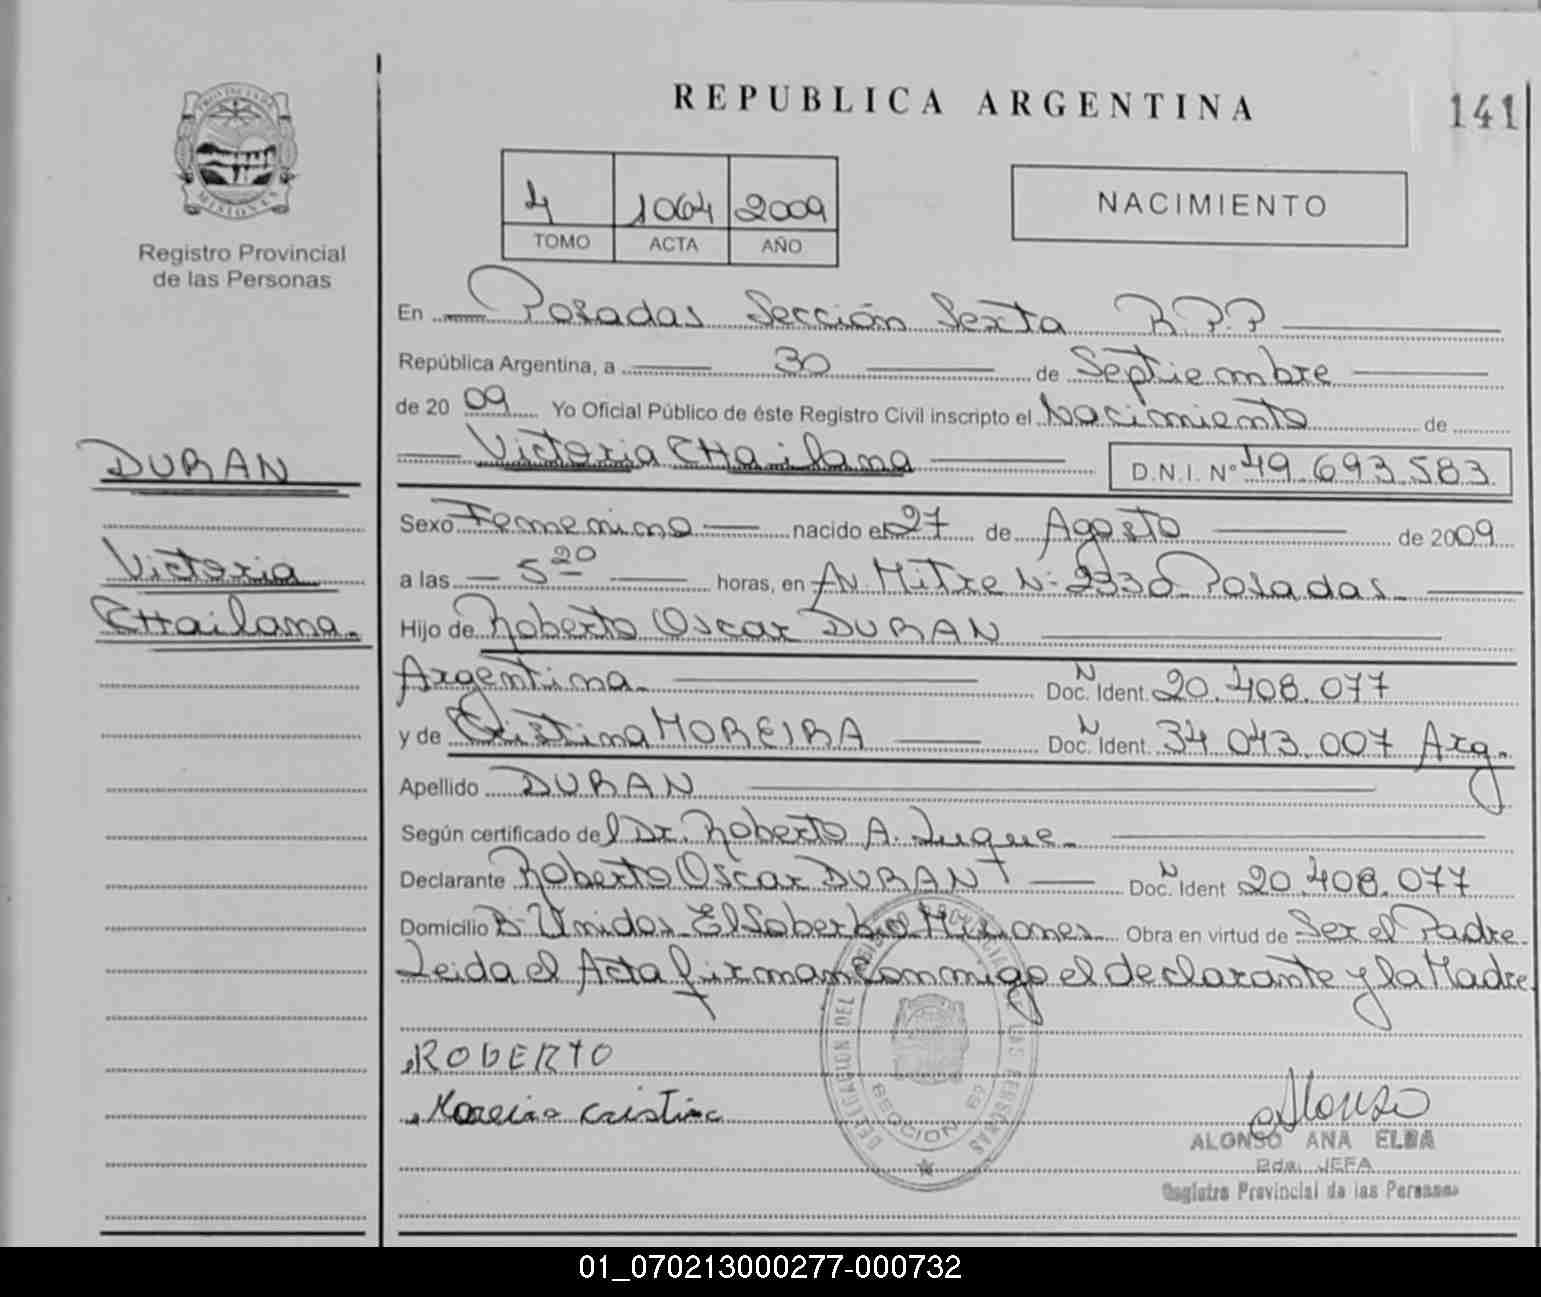 REPUBLICA ARGENTINA
141
PROVINCIA DE
MISIONES
Registro Provincial
de las Personas
4 1064 2009
TOMO ACTA AÑO
NACIMIENTO
En Posadas Sección Sexta R.P.P
República Argentina, a 30 de Septiembre
de 2009 Yo Oficial Público de éste Registro Civil inscripto el Nacimiento de
Victoria CHailana D.N.I. Nº 49.693.583
DURAN
Victoria
CHailana.
Sexo Femenino nacido el 27 de Agosto de 2009
a las 5 20 horas, en AV. Mitre Nº 2330 Posadas
Hijo de Roberto Oscar DURAN
Argentina. Doc. N Ident. 20.408.077
y de Cristina MOREIRA Doc. N Ident. 34.043.007 Arg.
Apellido DURAN
Según certificado del Dr. Roberto A. Luque
Declarante Roberto Oscar DURAN Doc. N Ident 20.408.077
Domicilio Bº Unidos El Soberbio Misiones Obra en virtud de Ser el Padre
Leida el Acta firman conmigo el declarante y la Madre
ROBERTO
Moreira Cristina
DELEGACION DEL REGISTRO PROVINCIAL DE LAS PERSONAS
SECCION 6ª
Alonso
ALONSO ANA ELBA
2da. JEFA
Registro Provincial de las Personas
01_070213000277-000732